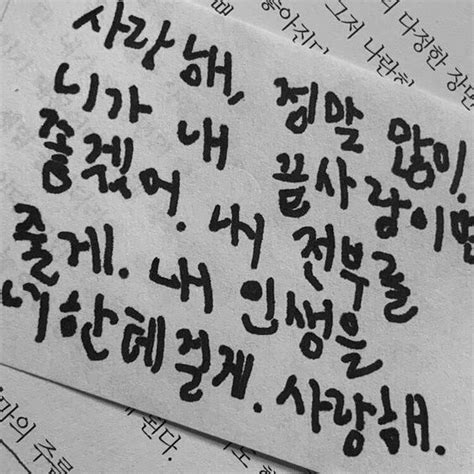 다정한 장면
그저 나란히
좋아진다
사랑해, 정말 많이.
니가 내 끝사랑이면
좋겠어. 내 전부를
줄게. 내 인생을
너한테 걸게. 사랑해.
마의 주름
된다.